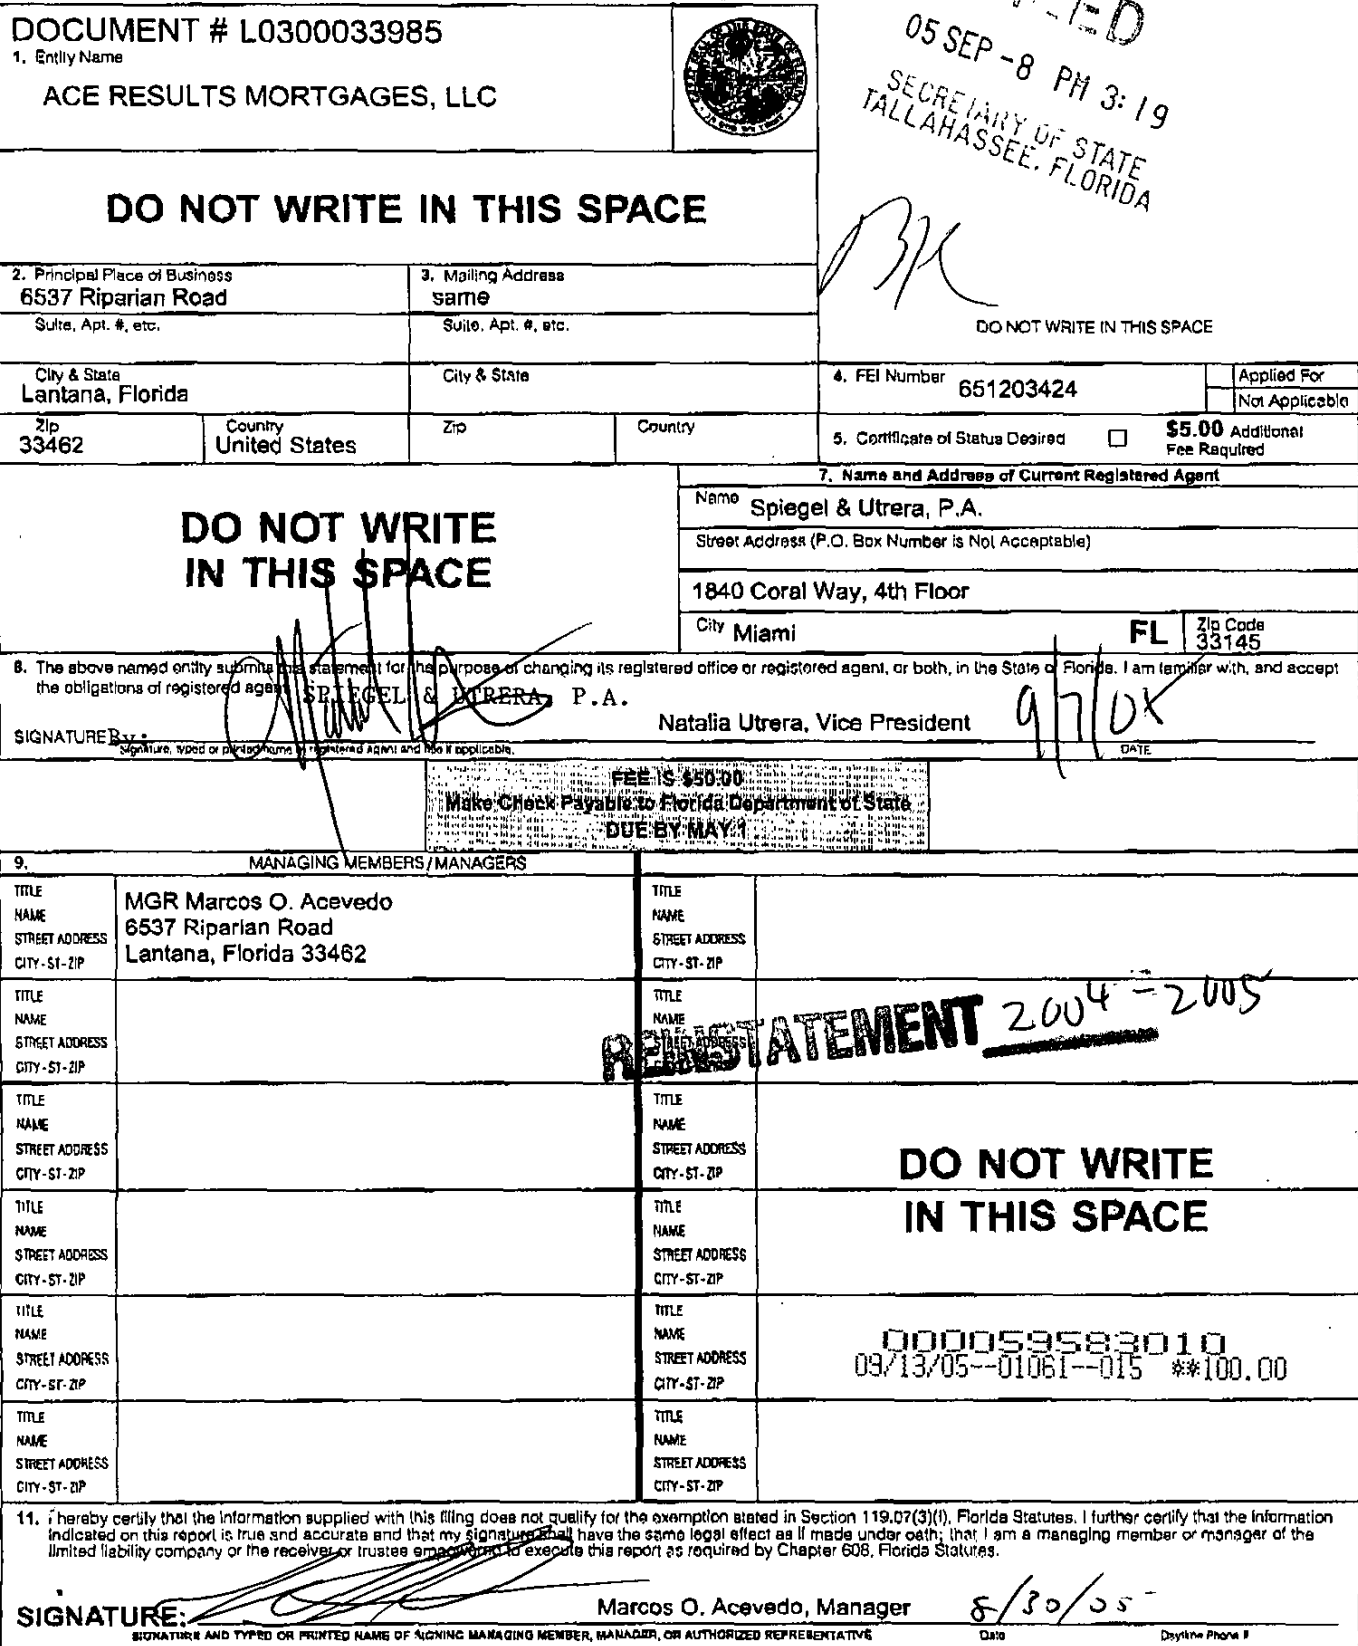 DOCUMENT # L0300033985
1. Entity Name
ACE RESULTS MORTGAGES, LLC
05 SEP -8 PM 3:19
SECRETARY OF STATE
TALLAHASSEE, FLORIDA
DO NOT WRITE IN THIS SPACE
2. Principal Place of Business
6537 Riparian Road
3. Mailing Address
same
Suite, Apt. #, etc.
Suite, Apt. #, etc.
DO NOT WRITE IN THIS SPACE
City & State
Lantana, Florida
City & State
4. FEI Number
651203424
Applied For
Not Applicable
Zip
33462
Country
United States
Zip
Country
5. Certificate of Status Desired
$5.00 Additional
Fee Required
7. Name and Address of Current Registered Agent
Name Spiegel & Utrera, P.A.
Street Address (P.O. Box Number is Not Acceptable)
1840 Coral Way, 4th Floor
City Miami
FL
Zip Code
33145
DO NOT WRITE
IN THIS SPACE
8. The above named entity submits this statement for the purpose of changing its registered office or registered agent, or both, in the State of Florida. I am familiar with, and accept
the obligations of registered agent
SPIEGEL & UTRERA, P.A.
SIGNATURE By:
Natalia Utrera, Vice President
9/7/05
Signature, typed or printed name of registered agent and title if applicable.
DATE
FEE IS $50.00
Make Check Payable to Florida Department of State
DUE BY MAY 1
9. MANAGING MEMBERS/MANAGERS
TITLE
NAME
STREET ADDRESS
CITY-ST-ZIP
MGR Marcos O. Acevedo
6537 Riparian Road
Lantana, Florida 33462
TITLE
NAME
STREET ADDRESS
CITY-ST-ZIP
TITLE
NAME
STREET ADDRESS
CITY-ST-ZIP
TITLE
NAME
STREET ADDRESS
REINSTATEMENT 2004-2005
TITLE
NAME
STREET ADDRESS
CITY-ST-ZIP
TITLE
NAME
STREET ADDRESS
CITY-ST-ZIP
DO NOT WRITE
IN THIS SPACE
TITLE
NAME
STREET ADDRESS
CITY-ST-ZIP
TITLE
NAME
STREET ADDRESS
CITY-ST-ZIP
TITLE
NAME
STREET ADDRESS
CITY-ST-ZIP
TITLE
NAME
STREET ADDRESS
CITY-ST-ZIP
000059583010
09/13/05--01061--015 **100.00
TITLE
NAME
STREET ADDRESS
CITY-ST-ZIP
TITLE
NAME
STREET ADDRESS
CITY-ST-ZIP
11. I hereby certify that the information supplied with this filing does not qualify for the exemption stated in Section 119.07(3)(i), Florida Statutes. I further certify that the information
indicated on this report is true and accurate and that my signature shall have the same legal effect as if made under oath; that I am a managing member or manager of the
limited liability company or the receiver or trustee empowered to execute this report as required by Chapter 608, Florida Statutes.
SIGNATURE:
Marcos O. Acevedo, Manager
8/30/05
SIGNATURE AND TYPED OR PRINTED NAME OF SIGNING MANAGING MEMBER, MANAGER, OR AUTHORIZED REPRESENTATIVE
Date
Daytime Phone #